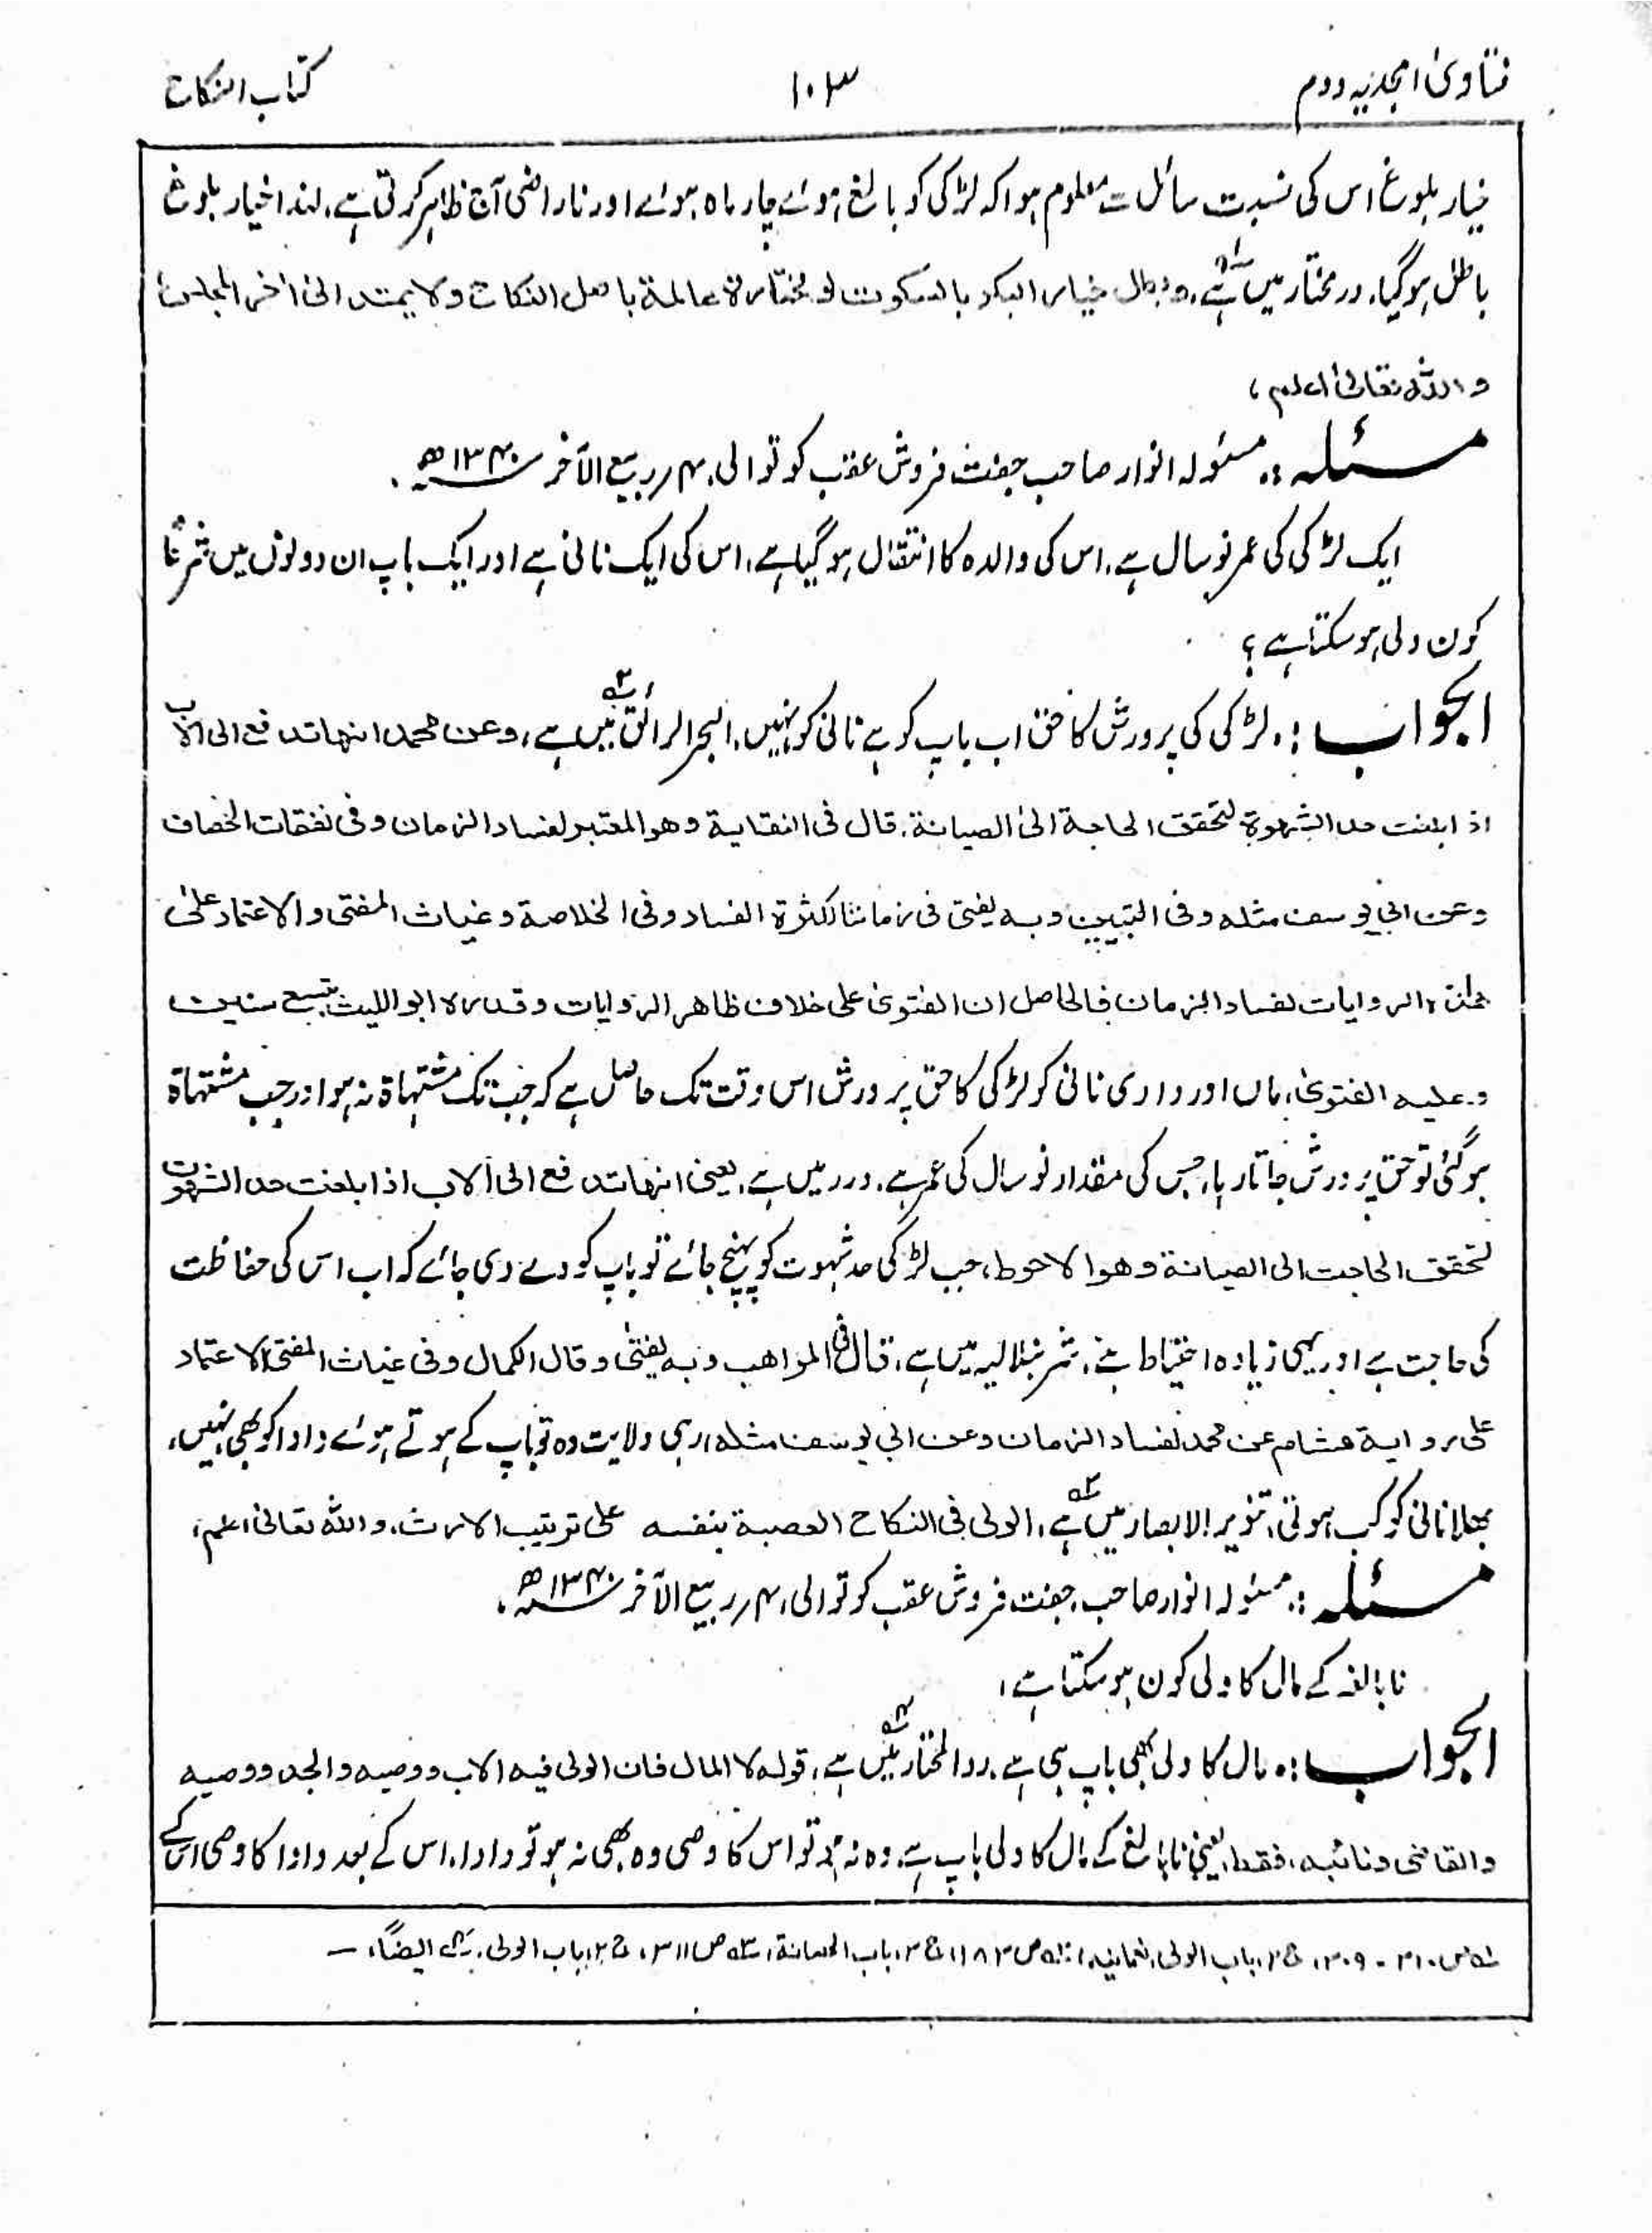 فتاویٰ امجدیہ دوم
۱۰۳
کتاب النکاح
خیار بلوغ اس کی نسبت سائل سے معلوم ہوا کہ لڑکی کو بالغ ہوئے چار ماہ ہوئے اور ناراضی آج ظاہر کرتی ہے، لہٰذا خیار بلوغ
باطل ہوگیا، درمختار میں ہے۱ہ، وبطل خیار البکر بالسکوت لو مختارة عالمة باصل النکاح ولا یمتد الی اٰخر المجلس،
واللہ تعالیٰ اعلم،
مسئلہ:۔ مسئولہ انوار صاحب جفت فروش عقب کوتوالی، ۴؍ ربیع الآخر ۱۳۴۰ھ۔
ایک لڑکی کی عمر نو سال ہے، اس کی والدہ کا انتقال ہوگیا ہے، اس کی ایک نانی ہے اور ایک باپ ان دونوں میں شرعًا
کون ولی ہوسکتا ہے؟
الجواب:۔ لڑکی کی پرورش کا حق اب باپ کو ہے نانی کو نہیں، البحر الرائق میں ہے۲ہ، وعن محمد انها تدفع الی الاب
اذا بلغت حد الشهوة لتحقق الحاجة الیٰ الصیانة، قال فی النقایة وهو المعتبر لفساد الزمان وفی نفقات الخصاف
وعن ابی یوسف مثله وفی التبیین وبه یفتی فی زماننا لکثرة الفساد وفی الخلاصة وغیاث المفتی والاعتماد علیٰ
هٰذه الروایات لفساد الزمان فالحاصل ان الفتویٰ علی خلاف ظاهر الروایات وقدره ابو اللیث بتسع سنین
وعلیه الفتویٰ، ماں اور دادی نانی کو لڑکی کا حق پرورش اس وقت تک حاصل ہے کہ جب تک مشتہاة نہ ہو اور جب مشتہاة
ہوگئی تو حق پرورش جاتا رہا، جس کی مقدار نو سال کی عمر ہے، درر میں ہے، یعنی انها تدفع الی الاب اذا بلغت حد الشهوت
لتحقق الحاجت الی الصیانة وهوا لاحوط، جب لڑکی حد شہوت کو پہنچ جائے تو باپ کو دے دی جائے کہ اب اس کی حفاظت
کی حاجت ہے اور یہی زیادہ احتیاط ہے، شرنبلالیہ میں ہے، قال فی المواهب وبه یفتیٰ وقال الکمال وفی غیاث المفتی الاعتماد
علی روایة هشام عن محمد لفساد الزمان وعن ابی یوسف مثله، رہی ولایت وہ تو باپ کے ہوتے ہوئے دادا کو بھی نہیں،
بھلا نانی کو کب ہوتی، تنویر الابصار میں ہے۳ہ، الولی فی النکاح العصبة بنفسه علی ترتیب الارث، واللہ تعالیٰ اعلم،
مسئلہ:۔ مسئولہ انوار صاحب، جفت فروش عقب کوتوالی، ۴؍ ربیع الآخر ۱۳۴۰ھ۔
نابالغہ کے مال کا ولی کون ہوسکتا ہے،
الجواب:۔ مال کا ولی بھی باپ ہی ہے، ردالمحتار میں ہے۴ہ، قوله لا المال فان الولی فیه الاب ووصیه والجد ووصیه
والقاضی ونائبه، فقط، یعنی نابالغ کے مال کا ولی باپ ہے، وہ نہ ہو تو اس کا وصی وہ بھی نہ ہو تو دادا، اس کے بعد دادا کا وصی اس کے
۱ہ ص ۳۱۰ - ۳۰۹، ج ۲، باب الولی، نعمانیہ، ۲ہ ص ۱۸۳، ج ۴، باب الحضانة، ۳ہ ص ۳۱۱، ج ۲، باب الولی، ۴ہ ایضًا، —